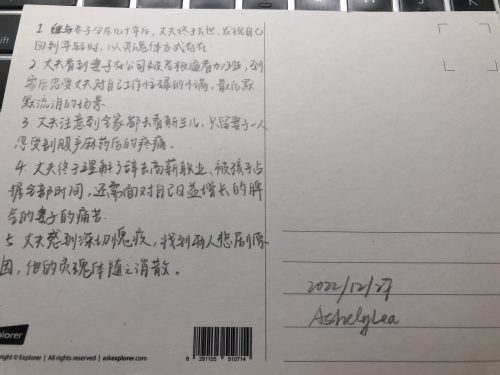 1. 继与妻子分居几十年后，丈夫终于去世，发现自己
回到年轻时，以灵魂体方式存在
2. 丈夫看到妻子在公司被老板逼着加班，到
家后忍受丈夫对自己工作忙碌的不满，最后默
默流泪的场景
3. 丈夫注意到全家都去看新生儿，只留妻子一人
忍受剖腹产麻药后的疼痛。
4. 丈夫终于理解了辞去高薪职业、被孩子占
据全部时间，还需面对自己日益增长的脾
气的妻子的痛苦.
5. 丈夫感到深切愧疚，找到两人悲剧原
因，他的灵魂体随之消散。
2022/12/27
AshelyLea
plorer
right © Explorer | All rights reserved | askexplorer.com
6 291105 510714